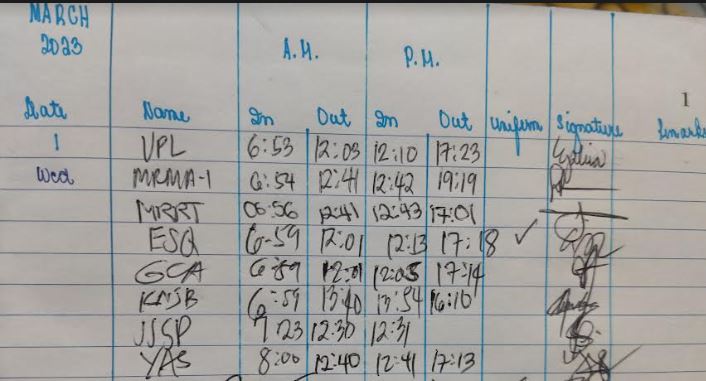 MARCH
2023
A.M. P.M.
1
Date Name In Out In Out Uniform Signature Remarks
1 VPL 6:53 12:03 12:10 17:23
Wed MRMA-1 6:54 12:41 12:42 19:19
MRRT 06:56 12:41 12:43 17:01
ESQ 6-59 12:01 12:13 17:18 ✓
GCA 6:59 12:01 12:05 17:14
KNJB 6:59 13:40 13:54 16:10
JSSP 7 23 12:30 12:31
YAS 8:00 12:40 12:41 17:13